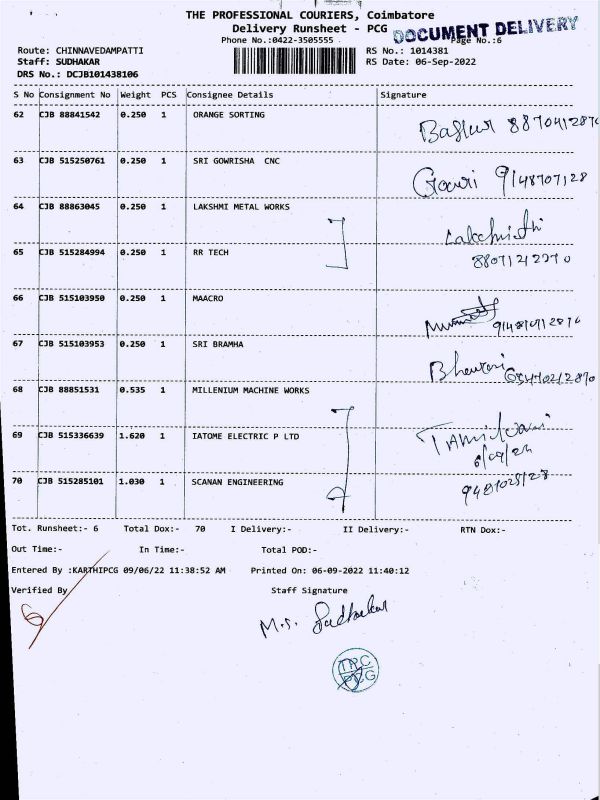 THE PROFESSIONAL COURIERS, Coimbatore
Delivery Runsheet - PCG
DOCUMENT DELIVERY
Phone No.:0422-3505555
Page No.:6
Route: CHINNAVEDAMPATTI
RS No.: 1014381
Staff: SUDHAKAR
RS Date: 06-Sep-2022
DRS No.: DCJB101438106
S No Consignment No Weight PCS Consignee Details Signature
62 CJB 88841542 0.250 1 ORANGE SORTING
63 CJB 515250761 0.250 1 SRI GOWRISHA CNC
Gowri 9148707128
64 CJB 88863045 0.250 1 LAKSHMI METAL WORKS
65 CJB 515284994 0.250 1 RR TECH
66 CJB 515103950 0.250 1 MAACRO
67 CJB 515103953 0.250 1 SRI BRAMHA
68 CJB 88851531 0.535 1 MILLENIUM MACHINE WORKS
69 CJB 515336639 1.620 1 IATOME ELECTRIC P LTD
70 CJB 515285101 1.030 1 SCANAN ENGINEERING
Tot. Runsheet:- 6 Total Dox:- 70 I Delivery:- II Delivery:- RTN Dox:-
Out Time:- In Time:- Total POD:-
Entered By :KARTHIPCG 09/06/22 11:38:52 AM Printed On: 06-09-2022 11:40:12
Verified By Staff Signature
M.S. Sudhakar
TPC
PCG